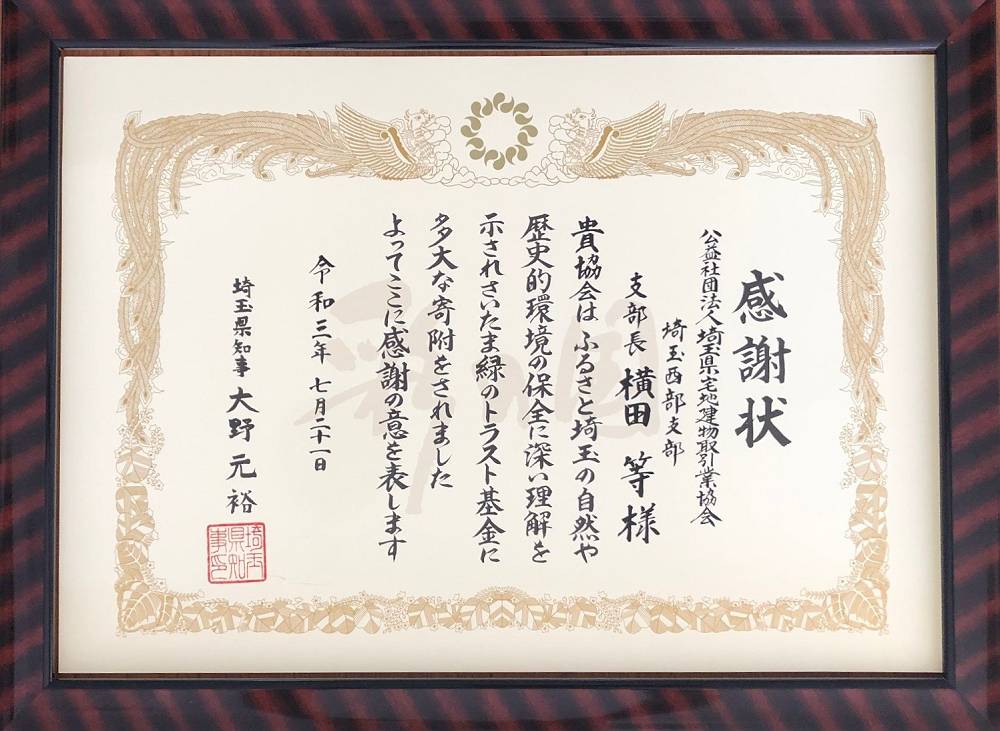 感謝状
公益社団法人埼玉県宅地建物取引業協会
埼玉西部支部
支部長 横田 等 様
貴協会は ふるさと埼玉の自然や
歴史的環境の保全に深い理解を
示されさいたま緑のトラスト基金に
多大な寄附をされました
よってここに感謝の意を表します
令和三年 七月二十一日
埼玉県知事 大野元裕
埼玉県知事印
彩の国